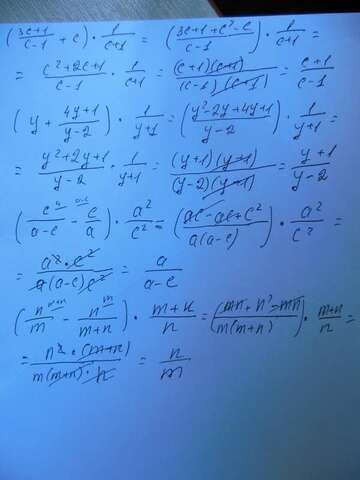 (3c+1/c-1 + c) · 1/c+1 = (3c+1+c²-c/c-1) · 1/c+1 =
= c²+2c+1/c-1 · 1/c+1 = (c+1)(c+1)/(c-1)(c+1) = c+1/c-1
(y + 4y+1/y-2) · 1/y+1 = (y²-2y+4y+1/y-2) · 1/y+1 =
= y²+2y+1/y-2 · 1/y+1 = (y+1)(y+1)/(y-2)(y+1) = y+1/y-2
(c/a-c - c/a) · a²/c² = (ac-ac+c²/a(a-c)) · a²/c² =
= a²·c²/a(a-c)c² = a/a-c
(n/m - n/m+n) · m+n/n = (mn+n²-mn/m(m+n)) · m+n/n =
= n²·(m+n)/m(m+n)·n = n/m